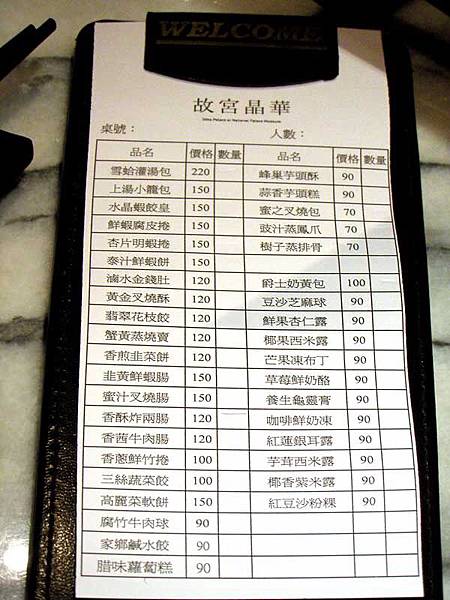 WELCOME
故宮晶華
Silks Palace at National Palace Museum
桌號： 人數：
品名 價格 數量 品名 價格 數量
雪蛤灌湯包 220 蜂巢芋頭酥 90
上湯小籠包 150 蒜香芋頭糕 90
水晶蝦餃皇 150 蜜之叉燒包 70
鮮蝦腐皮捲 150 豉汁蒸鳳爪 70
杏片明蝦捲 150 樹子蒸排骨 70
泰汁鮮蝦餅 150
滷水金錢肚 120 爵士奶黃包 100
黃金叉燒酥 120 豆沙芝麻球 90
翡翠花枝餃 120 鮮果杏仁露 90
蟹黃蒸燒賣 120 椰果西米露 90
香煎韭菜餅 120 芒果凍布丁 90
韭黃鮮蝦腸 150 草莓鮮奶酪 90
蜜汁叉燒腸 150 養生龜靈膏 90
香酥炸兩腸 120 咖啡鮮奶凍 90
香茜牛肉腸 120 紅蓮銀耳露 90
香蔥鮮竹捲 100 芋茸西米露 90
三絲蔬菜餃 100 椰香紫米露 90
高麗菜軟餅 150 紅豆沙粉粿 90
腐竹牛肉球 90
家鄉鹹水餃 90
腊味蘿蔔糕 90